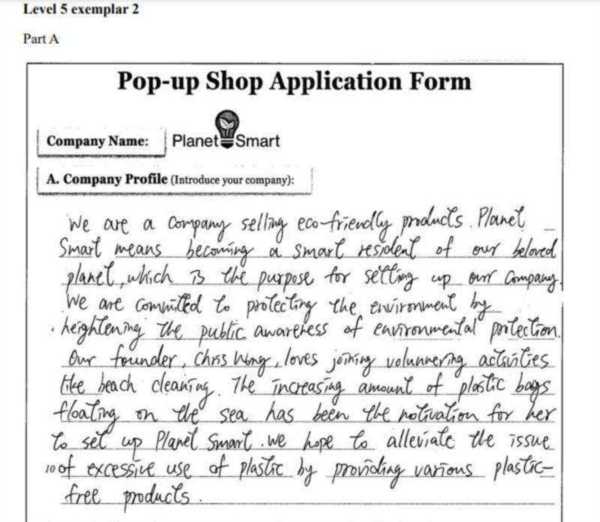 Level 5 exemplar 2
Part A
Pop-up Shop Application Form
Company Name: Planet Smart
A. Company Profile (Introduce your company):
We are a company selling eco-friendly products. Planet
Smart means becoming a smart resident of our beloved
planet, which is the purpose for setting up our company.
We are committed to protecting the environment by
heightening the public awareness of environmental protection.
Our founder, Chris Wong, loves joining volunnering activities
like beach cleaning. The increasing amount of plastic bags
floating on the sea has been the motivation for her
to set up Planet Smart. We hope to alleviate the issue
10 of excessive use of plastic by providing various plastic-
free products.